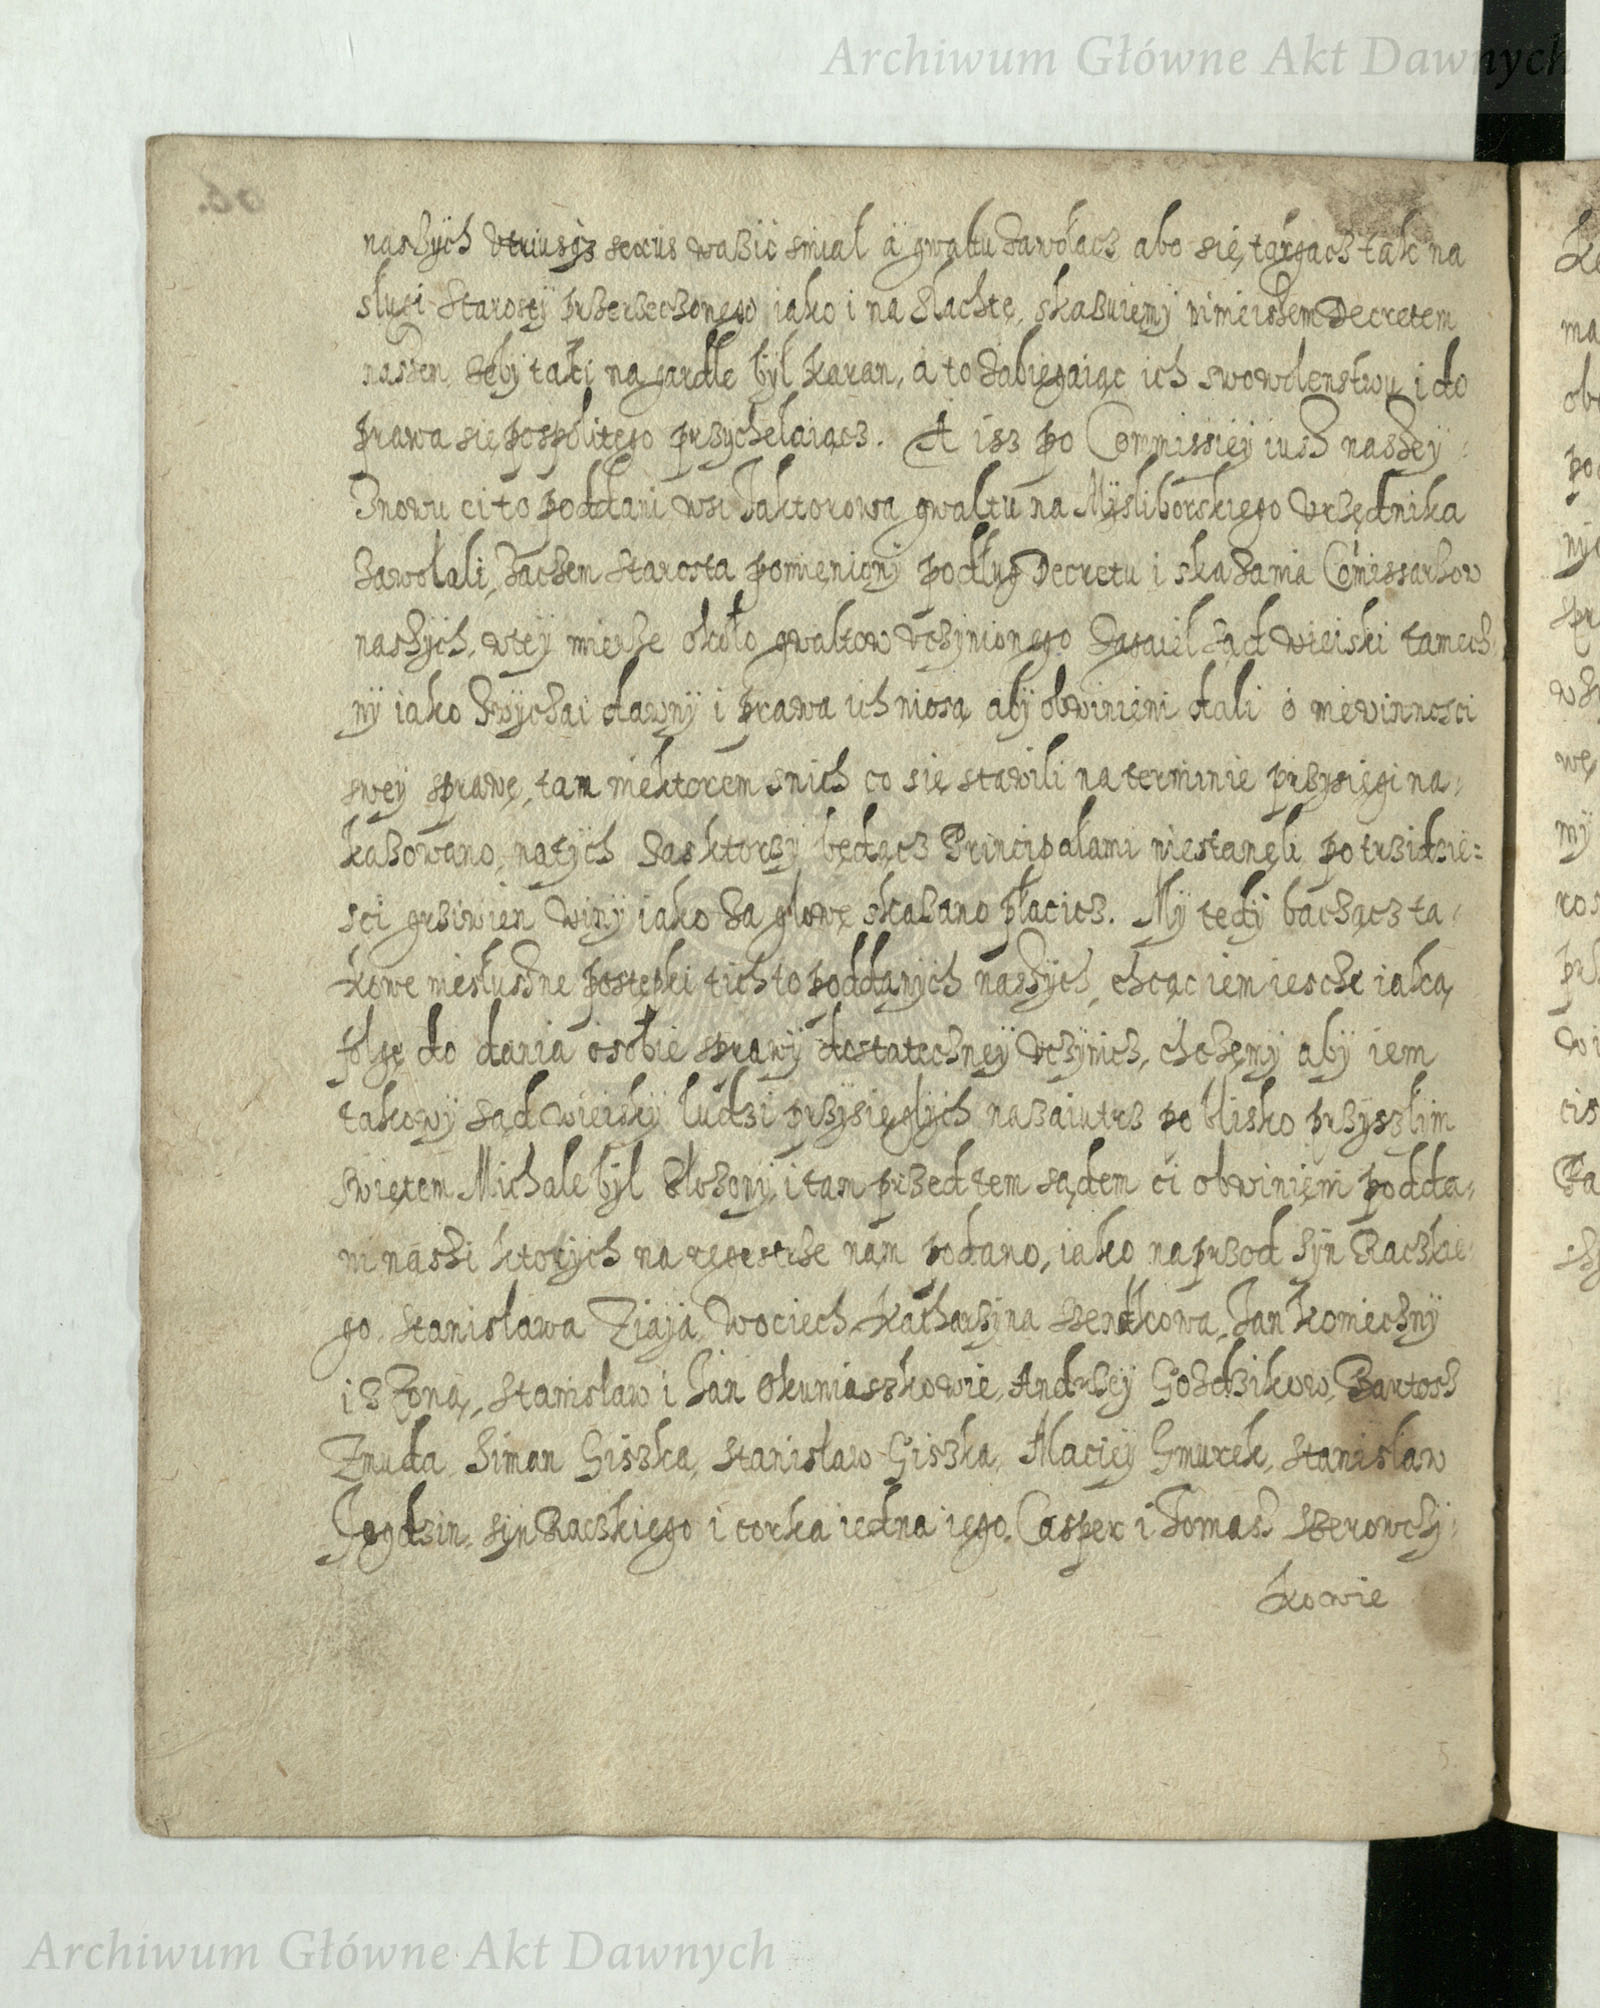 Archiwum Główne Akt Dawnych
naszÿch vtriusqȝ sexus ważić smiał ÿ gwałtu zawołacz abo się targacz tak na
sługi Starosty przerzeczonego iako i na szlachtę, skazuiemÿ ninieiszem Decretem
naszem żeby taki na gardle bÿł karan, a to zabiegaiąc ich swowolenstwu i do
prawa się pospolitego przychelaiącz. A isz po Commissiey iusz naszeÿ
Znowu ci to poddani wsi Jaktorowa gwałtu na Mÿsliborskiego vrzędnika
zawołali, Zaczem Starosta pomieniony podług Decretu i skazania Comissarzow
naszÿch, wteÿ mierze około gwałtow vczynionego zagaił sąd wieiski tamecz
nÿ iako zwÿczai dawnÿ i prawa ich niosą abÿ obwinieni dali o niewinnosci
sweÿ sprawę, tam niektorem snich co się stawili na terminie przysięgi na-
kazowano, natÿch zas ktorzÿ będącz Principalami niestanęli po trzidzie=
sci grziwien winÿ iako za głowę skazano płacicz. Mÿ tedÿ baczącz ta-
kowe niesłuszne postępki tich to poddanÿch naszÿch, chcąc iem iescze iaką
folgę do dania o sobie sprawÿ dostatecznęÿ vczÿnicz, chczemÿ abÿ iem
takowÿ sąd wieiskÿ ludzi przÿsięgłÿch nazaiutrz po blisko przÿszłim
swiętem Michale bÿł złożonÿ, i tam przed tem sądem ci obwinieni podda-
ni naszi ktorÿch na regestrze nam podano, iako naprzod sÿn Raczkie-
go, Stanisława Ziaja, Wociech, Katharzÿna Bendkowa, Jan Koniecznÿ
i z Żoną, Stanisław i Jan Okuniaszkowie, Andrzeÿ Gozdzikow, Bartosz
Zmuda, Siman Giszka, Stanisław Giszka, Macieÿ Gmurek, Stanisław
Jagdzin, sÿn Raczkiego i corka iedna iego, Casper i Tomasz Szerowczÿ-
kowie
Archiwum Główne Akt Dawnych